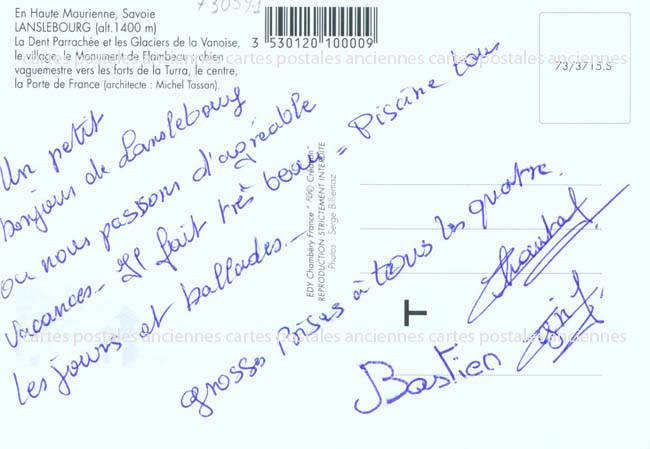 En Haute Maurienne, Savoie
LANSLEBOURG (alt.1400 m)
La Dent Parrachée et les Glaciers de la Vanoise,
le village, le Monument de Flambeau : chien
vaguemestre vers les forts de la Turra, le centre,
la Porte de France (architecte : Michel Tassan).
3 530120 100009
73/3715.S
cartes postales anciennes cartes postales anciennes cartes postales anciennes
Un petit
bonjour de Lanslebourg
ou nous passons d'agréable
vacances - Il fait très beau = Piscine tous
les jours et ballades -
grosses Poises à tous les quatre.
Chantal
Bastien
EDY Chambéry France - "EDO Création"
REPRODUCTION STRICTEMENT INTERDITE
Photos : Serge Billiemaz
cartes postales anciennes cartes postales anciennes cartes postales anciennes